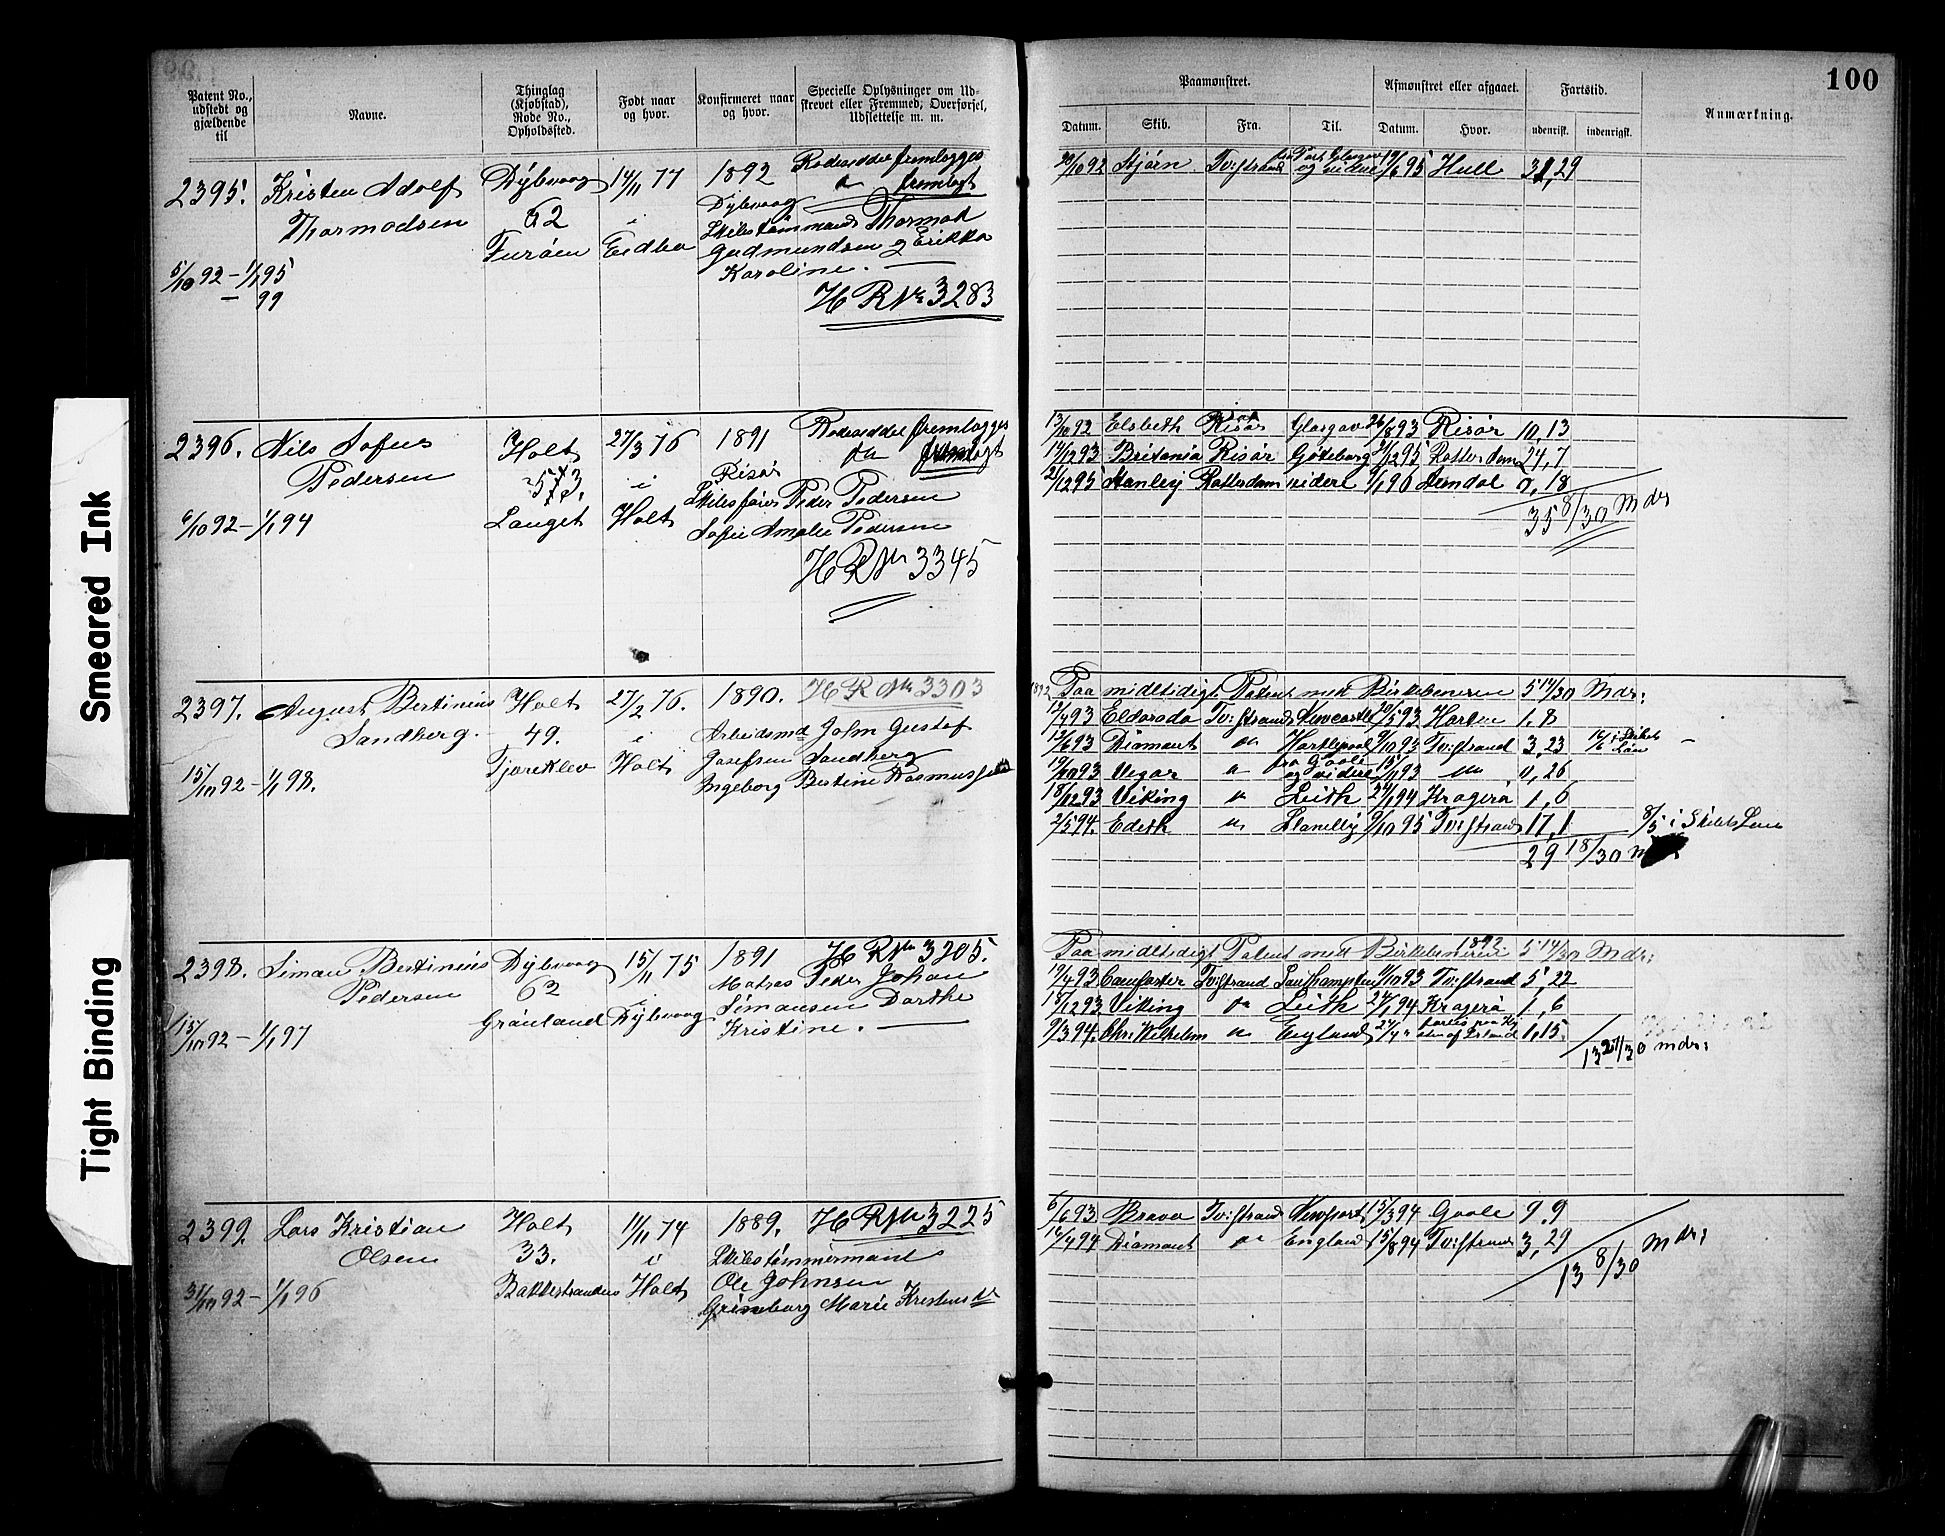 100
Patent No., udstedt og gjældende til
Navne.
Thinglag (Kjøbstad), Rode No., Opholdssted.
Født naar og hvor.
Konfirmeret naar og hvor.
Specielle Oplysninger om Udskrevet eller Fremmed, Overførsel, Udslettelse m. m.
Paamønstret.
Afmønstret eller afgaaet.
Fartstid.
Anmærkning.
Datum. Skib. Fra. Til. Datum. Hvor. udenrigsk. indenrigsk.
2395. Kristen Adolf Dybvaag 14/11 77 1892 Rodeseddel fremlægges
fremlagt
Thormodsen 62 i Dybvaag
Skibstømmermand Thormod
Furøen Eidbo Gudmundsen og Erikka
Karoline.
5/10 92 – 1/1 95
– 99
H R No 3283
20/10 92 Bjørn Tvistrand og videre 19/6 95 Hull 31,29
2396. Nils Sofus Holt 27/3 76 1891 Rodeseddel fremlægges
fremlagt
Pedersen 53. i Risør
Skibsfører Peder Pedersen
6/10 92 – 1/1 94 Lauget Holt Sofie Amalie Pedersen
H R No 3345
13/10 92 Elsbeth Risør Glasgow 26/8 93 Risør 10,13
14/12 93 Britania Risør Gøteborg 9/12 95 Rotterdam 24,7
21/12 95 Stanley Rotterdam videre 9/1 96 Arendal 0,18
35 8/30 Mdr
2397. August Bertinius Holt 27/2 76. 1890. H R No 3303
Sandberg. 49. i Arbeidsmd John Gustof
Josefsen Sandberg
15/10 92 – 1/1 98. Tjøreklev Holt Ingeborg Bertine Rasmussen
1892 Paa midltidigt Patent med Birkebeneren 5 14/30 Mdr:
12/4 93 Eldorado Tvistrand Newcastle 20/5 93 Horten 1,8
13/6 93 Diamant do Hartlepool 9/10 93 Tvistrand 3,23
fra Goole
19/10 93 Vegar do og videre 15/11 93 do 0,26
18/12 93 Viking do Leith 24/1 94 Kragerø 1,6
2/5 94. Edith do Llanelly 9/10 95 Tvistrand 17,1 8/5 i Skibets Løn
29 18/30
2398. Simon Bertinius Dybvaag 15/11 75 1891 H R No 3205.
Pedersen 62 i Matros Peder Johan
Simonsen Dorthe
15/10 92 – 1/1 97 Grønland Dybvaag Kristine.
Paa midltidigt Patent med Birkebeneren 1892. 5 14/30 Mdr:
19/4 93 Comforter Tvistrand Southampton 9/10 93 Tvistrand 5 22
18/12 93 Viking do Leith 24/1 94 Kragerø 1,6
9/3 94. Chr. Wilhelm do England 1,15.
13 27/30 mdr:
2399. Lars Kristian Holt 11/11 74 1889. H R No 3225
Olsen 33. i Skibstømmermand
Ole Johnsen
31/10 92 – 1/1 96 Bakkestranden Holt Gunnborg Marie Kristensdt
6/6 93 Bravo Tvistrand Newport 15/3 94 Goole 9.9
16/4 94 Diamant do England 15/8 94 Tvistrand 3,29
13 8/30 Mdr:
Smeared Ink
Tight Binding